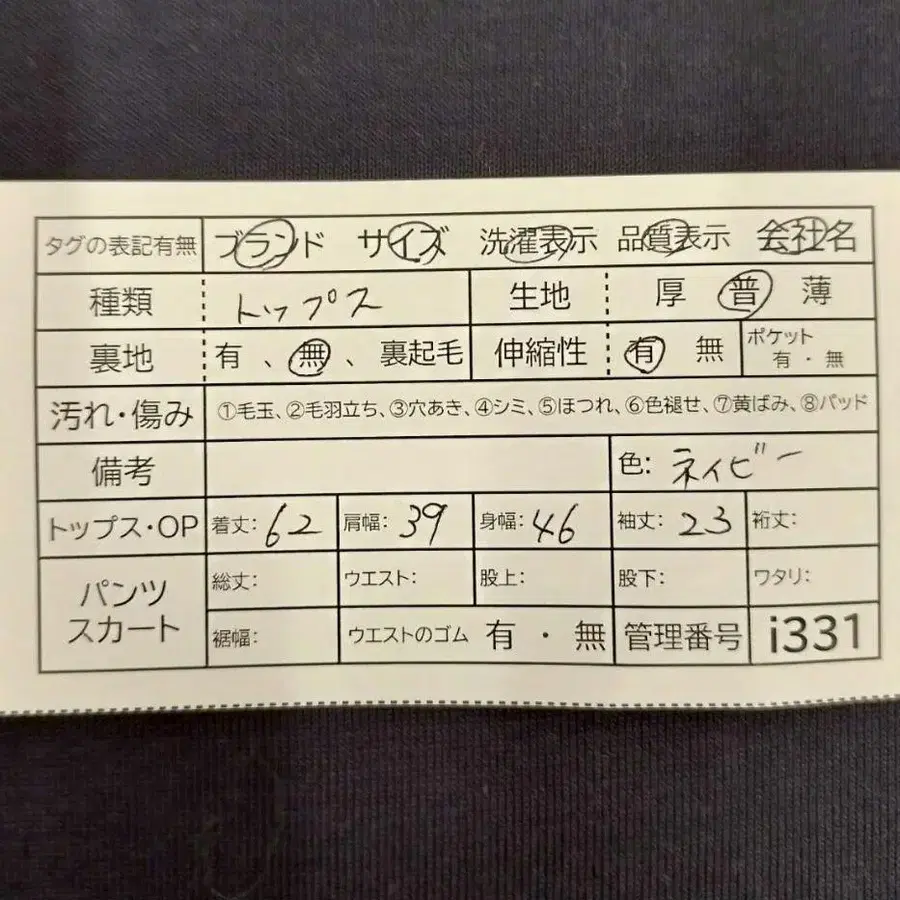 タグの表記有無 ブランド サイズ 洗濯表示 品質表示 会社名
種類 トップス 生地 厚 普 薄
裏地 有 、 無 、 裏起毛 伸縮性 有 無 ポケット 有 ・ 無
汚れ・傷み ①毛玉、②毛羽立ち、③穴あき、④シミ、⑤ほつれ、⑥色褪せ、⑦黄ばみ、⑧パッド
備考 色: ネイビー
トップス・OP 着丈: 62 肩幅: 39 身幅: 46 袖丈: 23 裄丈:
パンツ スカート 総丈: ウエスト: 股上: 股下: ワタリ:
裾幅: ウエストのゴム 有 ・ 無 管理番号 i331